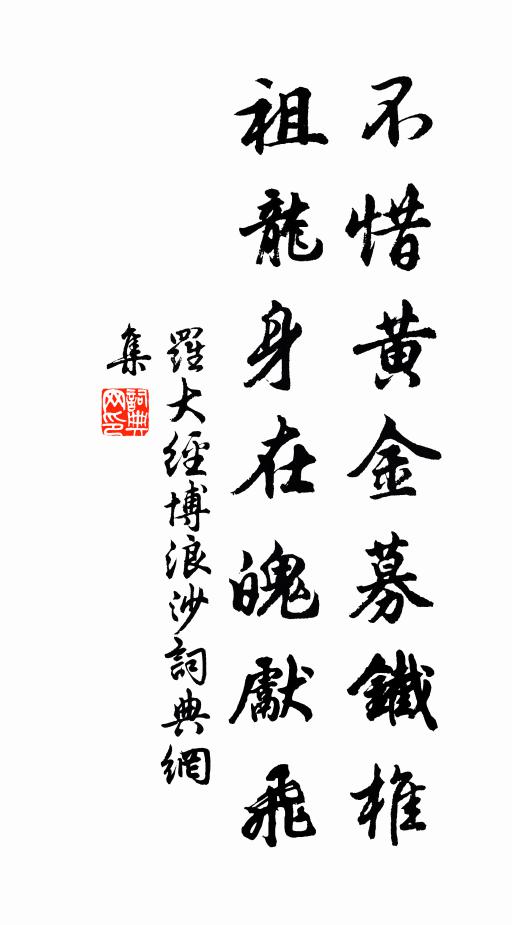 不惜黄金募鐵椎
祖龍身在魄獻飛
羅大經博浪沙詞典網
集
詞典網印